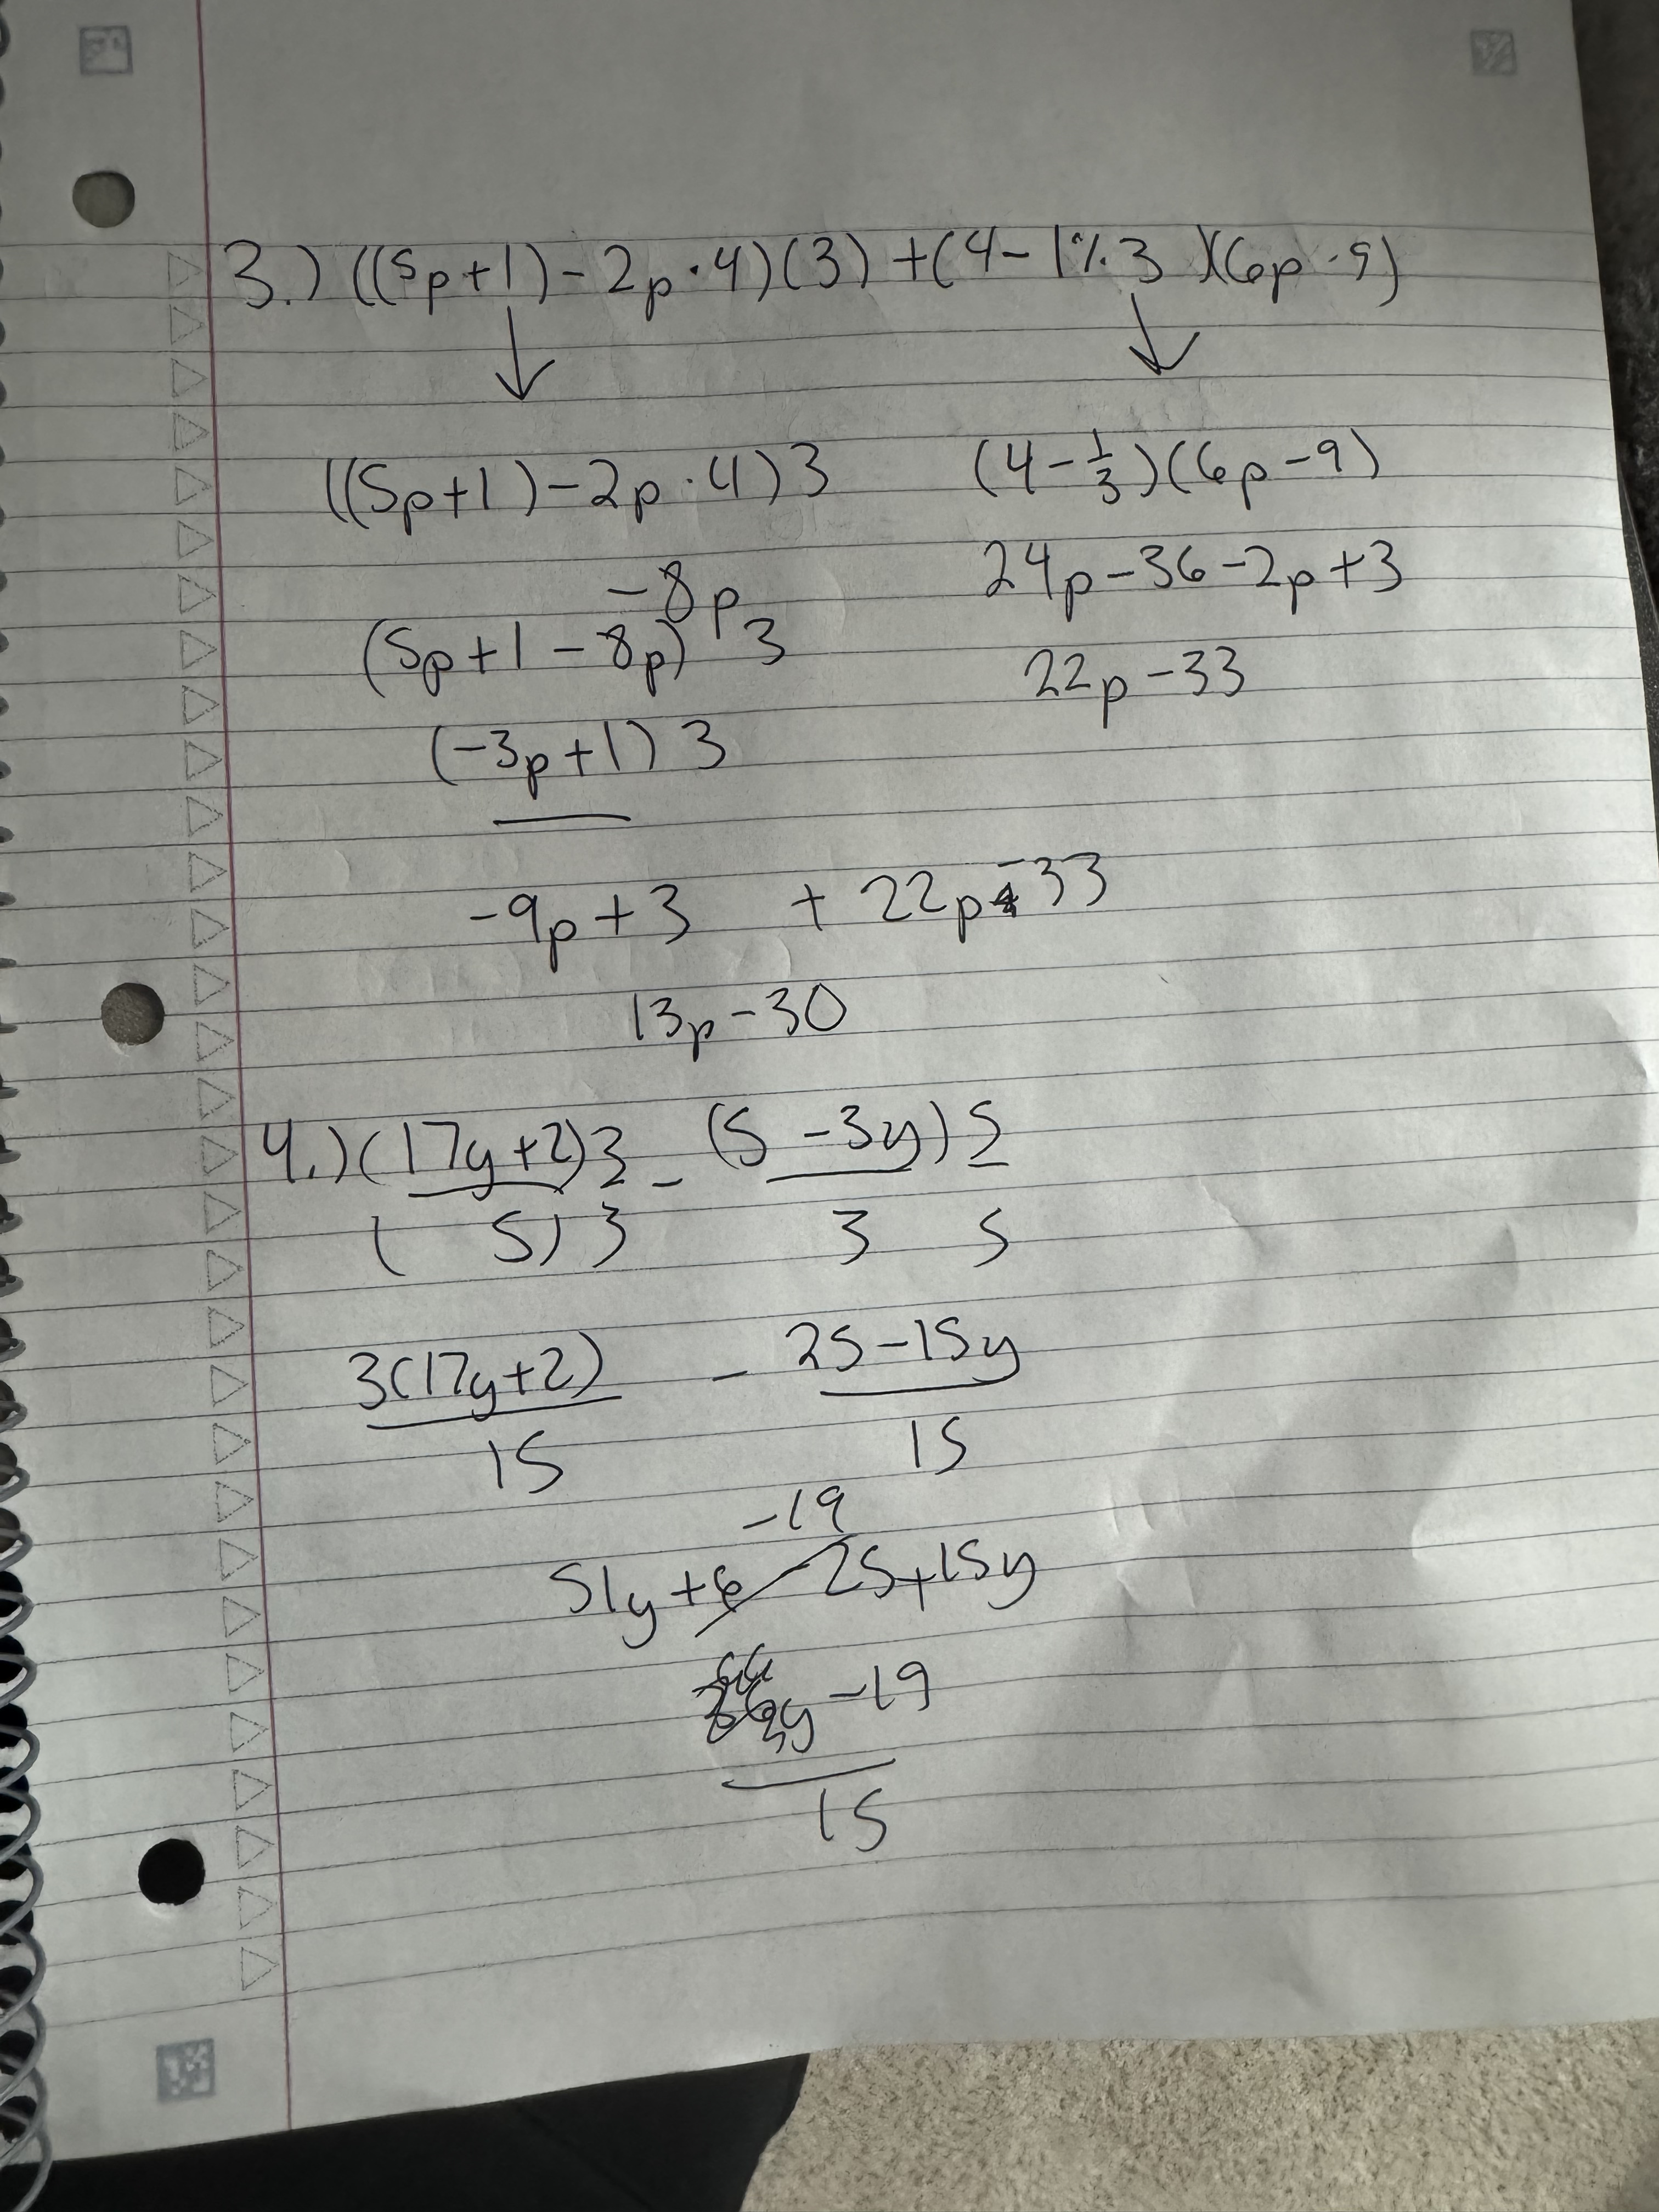 3.) ((5p+1)-2p·4)(3)+(4-1÷3)(6p-9)
((5p+1)-2p·4)3
(4-1/3)(6p-9)
-8p
24p-36-2p+3
(5p+1-8p)3
22p-33
(-3p+1)3
-9p+3 + 22p-33
13p-30
4.) (17y+2)3 - (5-3y)5
(5)3 3 5
3(17y+2) - 25-15y
15 15
-19
51y+6-25+15y
66y-19
15